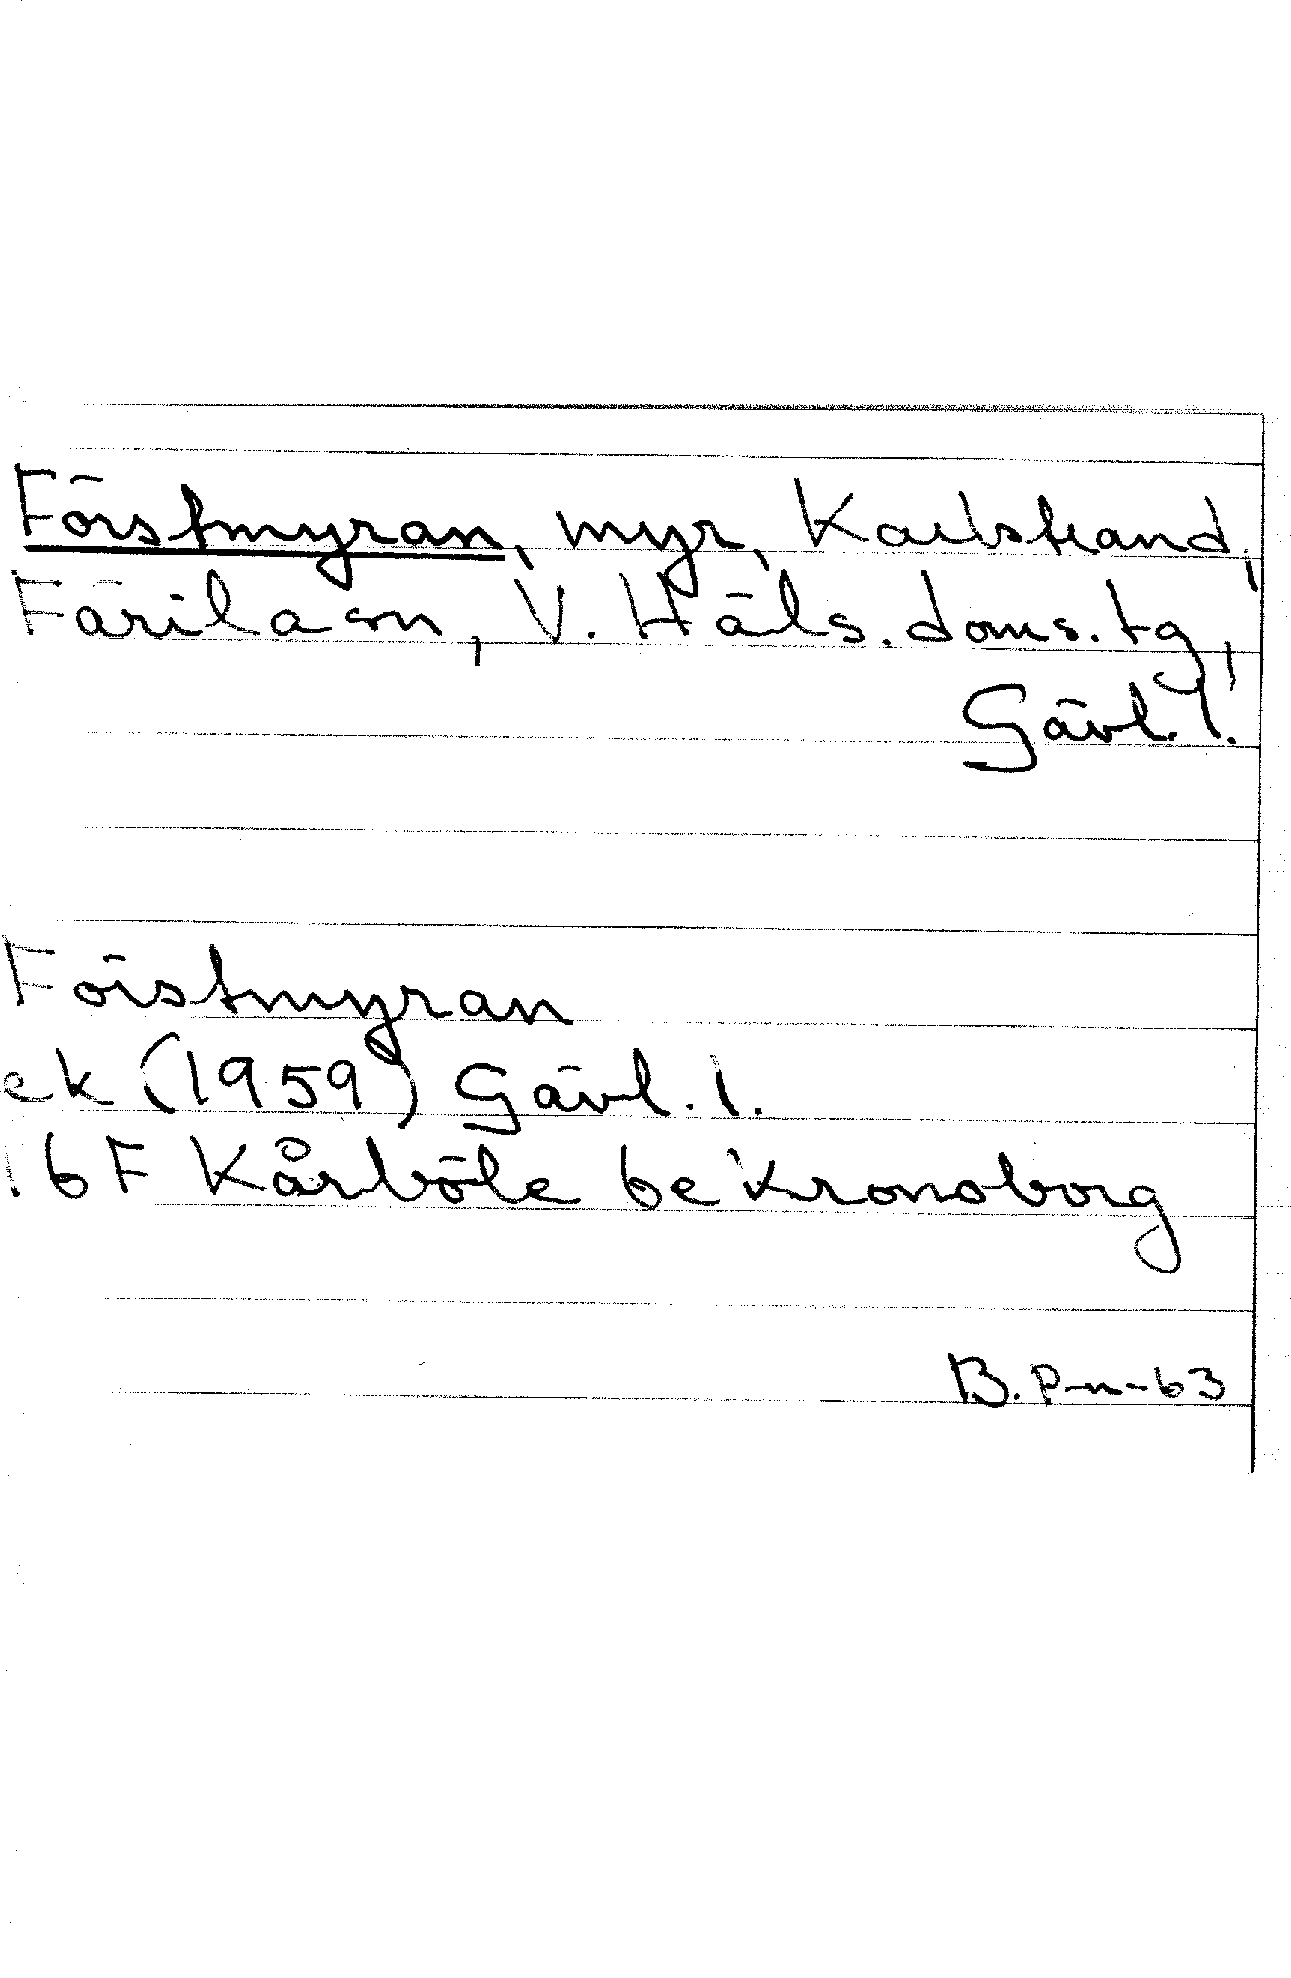 Förstmyran, myr, Karlstrand,
Färila sn, V. Häls. doms. tg,
Gävl. l.
Förstmyran
ek (1959) Gävl. l.
6 F Kårböle 6e Kronoborg
B. P-n-63